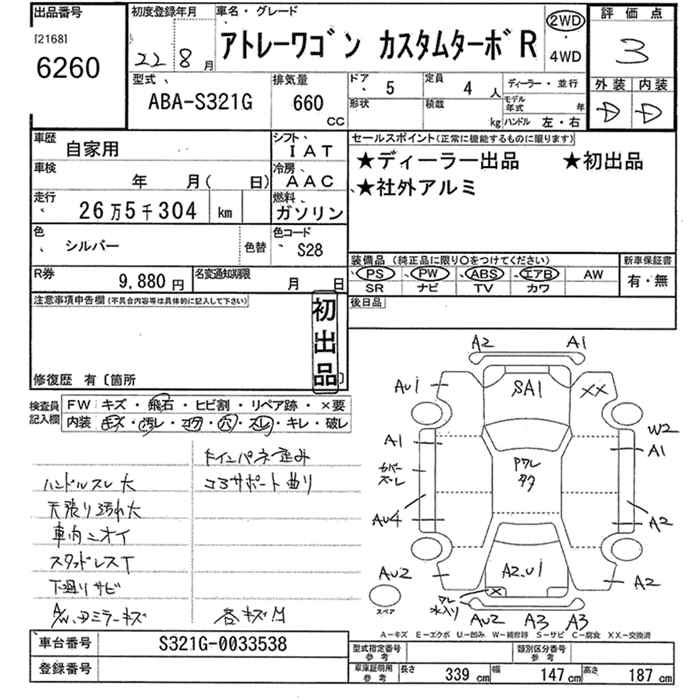 出品番号
[2168]
6260
初度登録年月
22年8月
車名・グレード
アトレーワゴン カスタムターボR
2WD
・
4WD
評価点
3
外装 内装
D D
型式、
ABA-S321G
排気量
660
CC
ドア・ 5
定員 4 人
ディーラー・並行
形状
積載
kg
モデル年式 年
ハンドル 左・右
車歴
自家用
シフト、
IAT
セールスポイント(正常に機能するものに限ります)
★ディーラー出品 ★初出品
★社外アルミ
車検
年 月( 日)
冷房、
AAC
走行、
26万5千304 km
燃料、
ガソリン
色、
シルバー
色替
色コード、
S28
装備品(純正品に限り○をつけてください)
新車保証書
PS PW ABS エアB AW
有・無
SR ナビ TV カワ
R券
9,880円
名変通知期限
月 日
注意事項申告欄(不具合内容等は具体的に記入して下さい)
初出品
後日品
修復歴 有〔箇所 〕
検査員記入欄
FW キズ・飛石・ヒビ割・リペア跡・×要
内装 キズ・汚レ・コゲ・穴・スレ・キレ・破レ
ドインパネ歪み
ハンドルスレ大
コアサポート曲り
天張り汚れ大
車内ニオイ
スタッドレスT
下廻りサビ
A/W、Dミラーキズ
各キズ凹
A2 A1
AU1
SA1
XX
W2
A1
A1
カバーズーレ
ワレ
AU4
A2
AU2
A2.U1
A2
X
スペア
ワレ
水入り
AU2 A3 A3
A-キズ E-エクボ U-凹み W-補修跡 S-サビ C-腐食 XX-交換済
車台番号
S321G-0033538
登録番号
型式指定番号
参考
類別区分番号
参考
車庫証明用
参考
長さ 339 cm
幅 147 cm
高さ 187 cm